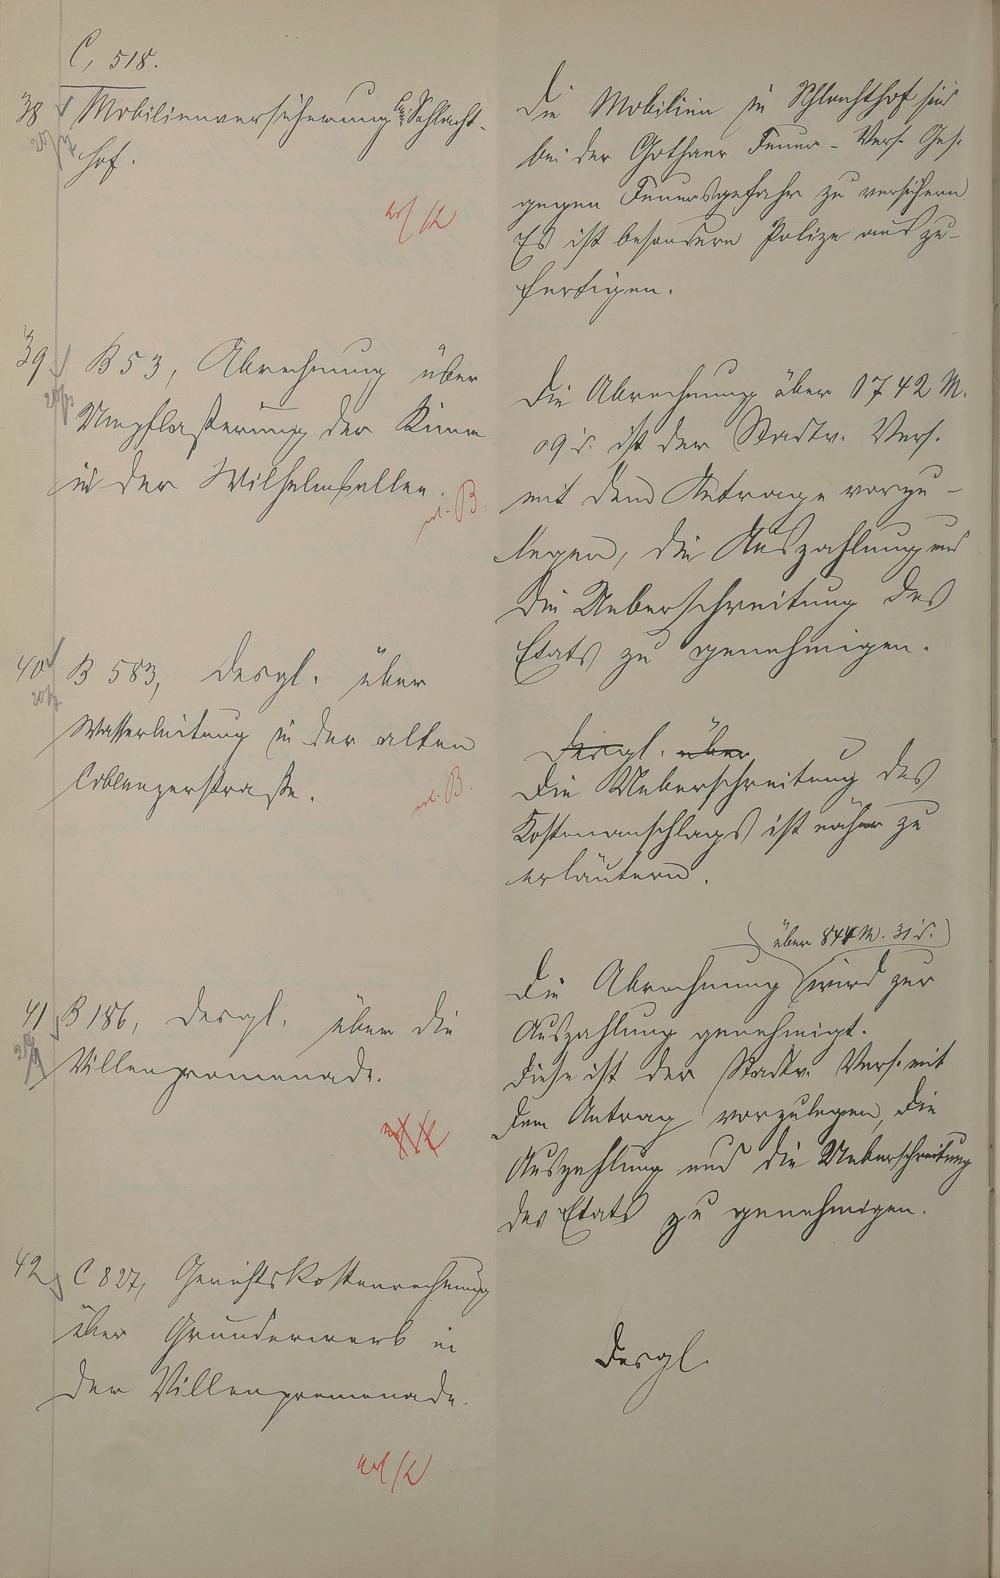 C, 518.
38 Mobilienversicherung bei Schlacht-
hof.
Die Mobilien im Schlachthof sind
bei der Gothaer Feuer-Vers. Ges.
gegen Feuersgefahr zu versichern.
Es ist besondere Polize auszu-
fertigen.
39 B 53, Abrechnung über
Umpflasterung der Rinne
in der Wilhelmsallee.
Die Abrechnung über 1742 M.
09 d. ist der Stadtv. Vers.
mit dem Antrage vorzu-
legen, die Auszahlung und
die Ueberschreitung des
Etats zu genehmigen.
40 B 583, desgl. über
Wasserleitung in der alten
Coblenzerstraße.
Desgl. über
Die Ueberschreitung des
Kostenanschlags ist näher zu
erläutern.
41 B 186, desgl. über die
Villenpromenade.
über 844 M. 31 d.
Die Abrechnung wird zur
Auszahlung genehmigt.
Diese ist der Stadtv. Vers. mit
dem Antrag vorzulegen, die
Auszahlung und die Ueberschreitung
des Etats zu genehmigen.
42 C 827, Gerichtskostenrechnung
über Grunderwerb in
der Villenpromenade.
Desgl.